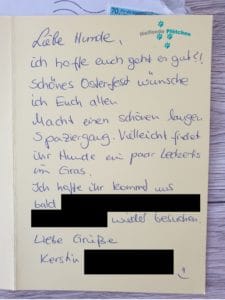 70
Helfende Pfötchen
Liebe Hunde,
ich hoffe euch geht es gut!
Schönes Osterfest wünsche
ich Euch allen
Macht einen schönen langen
Spaziergang. Vielleicht findet
ihr Hunde ein paar Leckerlis
im Gras.
Ich hoffe ihr kommd uns
bald
wieder besuchen.
Liebe Grüße
Kerstin